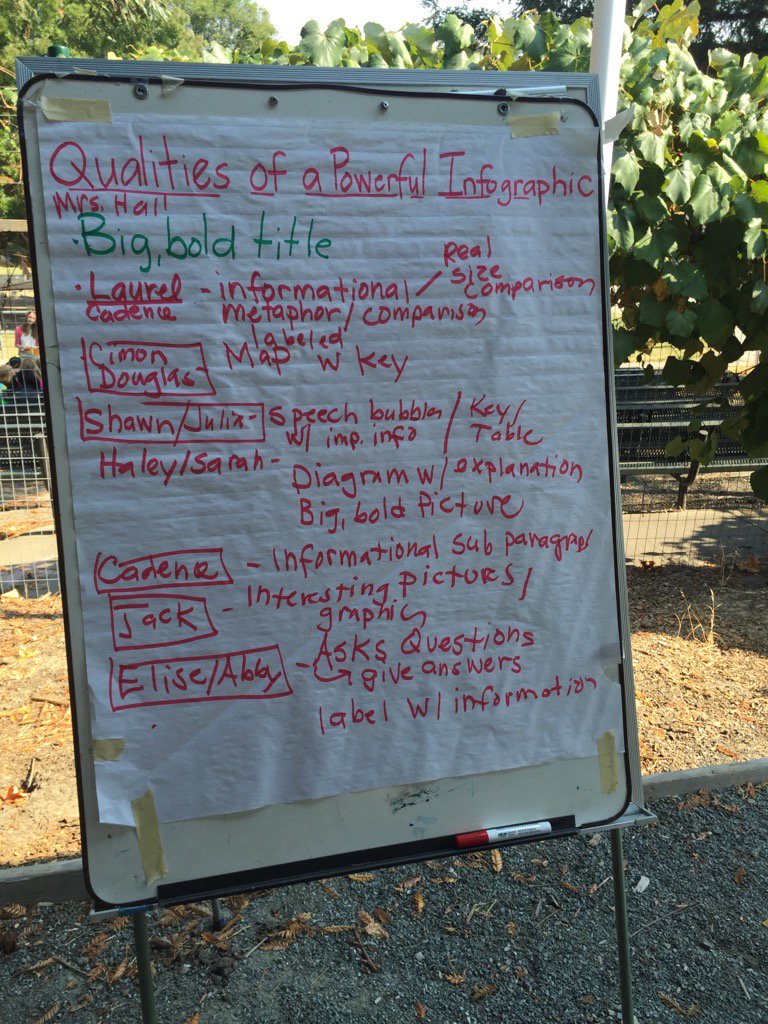 Qualities of a Powerful Infographic
Mrs. Hall
· Big, bold title
· Laurel - informational / Real size comparison
Cadence metaphor / comparison
Cimon Map labeled w Key
Douglas-
Shawn/Julix- Speech bubbles / Key /
w/ imp. info Table
Haley/Sarah- Diagram w/ explanation
Big, bold picture
Cadence - Informational sub paragraphs
Jack - Interesting pictures /
graphics
Elise/Abby - Asks Questions
give answers
label w/ information